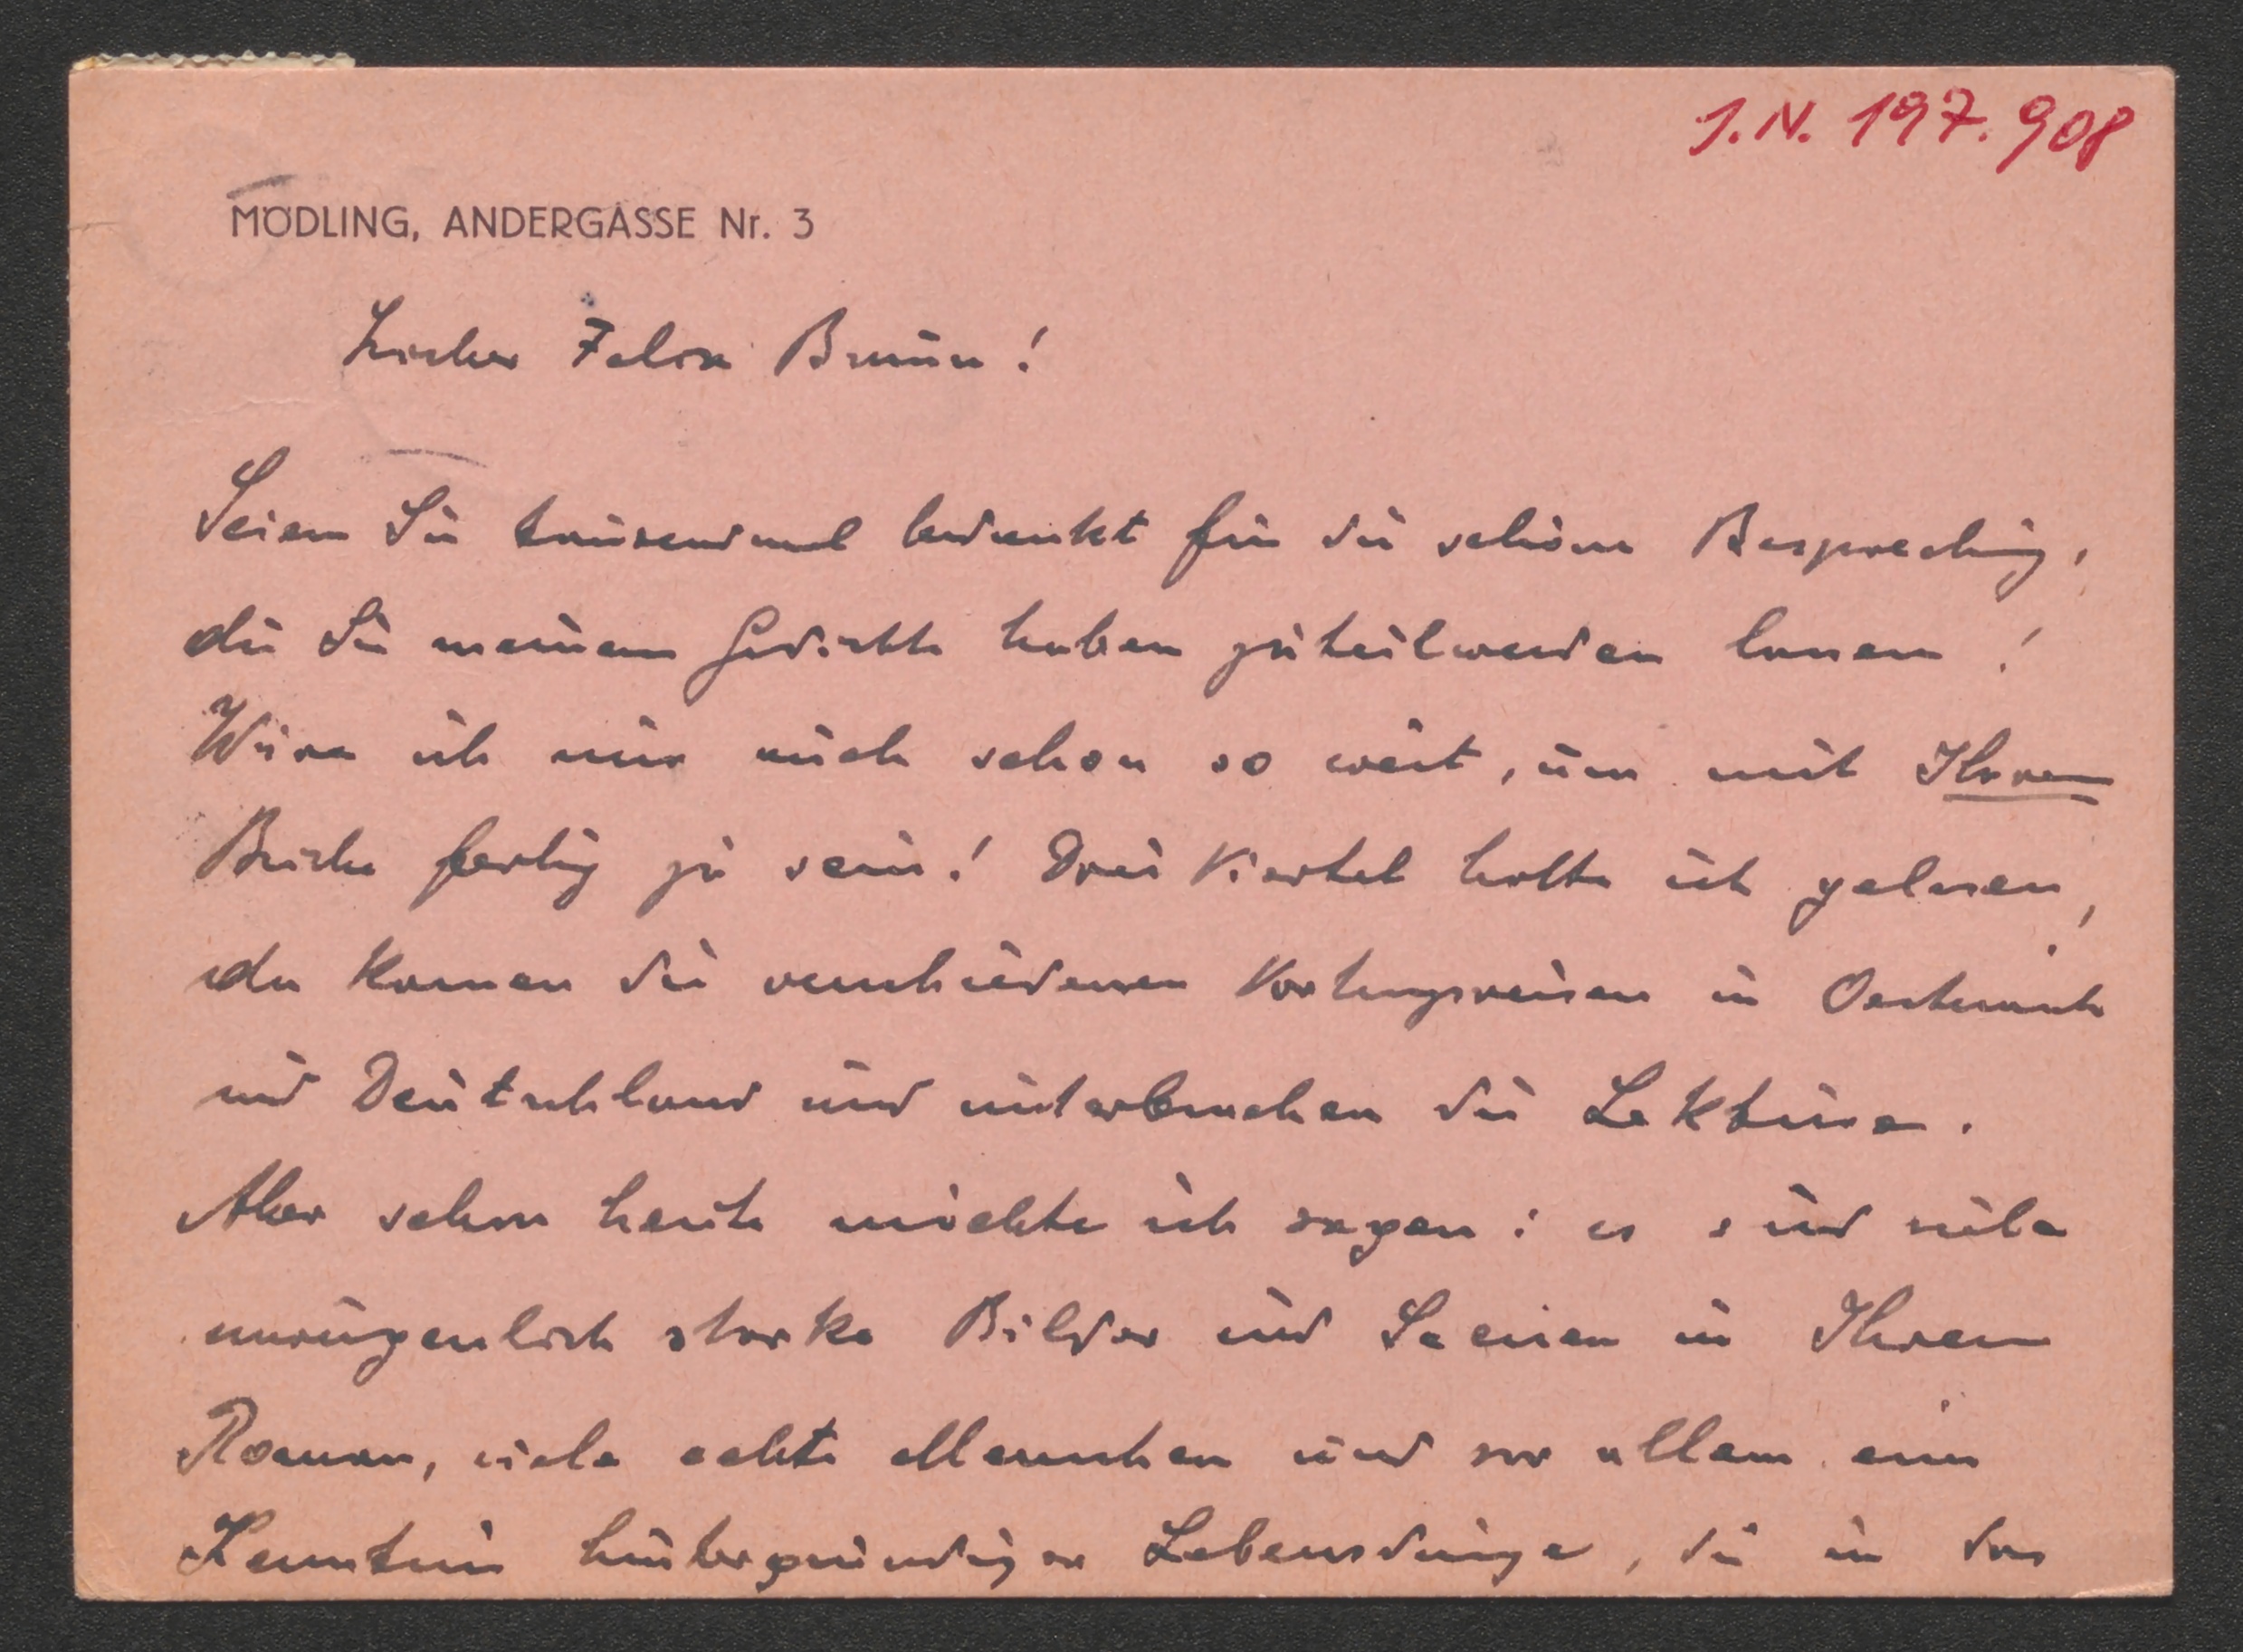 I.N. 197.908
MÖDLING, ANDERGASSE Nr. 3
Lieber Felix Braun!
Seien Sie tausendmal bedankt für die schöne Besprechung,
die Sie meinem Gedichte haben zuteilwerden lassen!
Wäre ich nur auch schon so weit, um mit Ihrem
Buche fertig zu sein! Drei Viertel hatte ich gelesen,
da kamen die verschiedenen Vortragsreisen in Oesterreich
und Deutschland und unterbrachen die Lektüre.
Aber schon heute möchte ich sagen: es sind viele
unsagenlich starke Bilder und Scenen in Ihrem
Roman, viele echte Menschen und vor allem eine
Kenntnis hintergründiger Lebensdinge, die in das